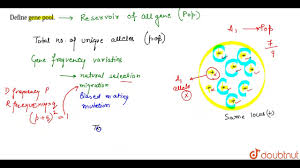 Define gene pool. → Reservoir of all gene (Pop)
Total no. of unique alleles (pop)
Gene frequency variation
→ natural selection
migration
Biased mating
mutation
D frequency P
R frequency q
(p+q)² = 1
A₁ → Pop
A₁
allele
Same locus
doubtnut